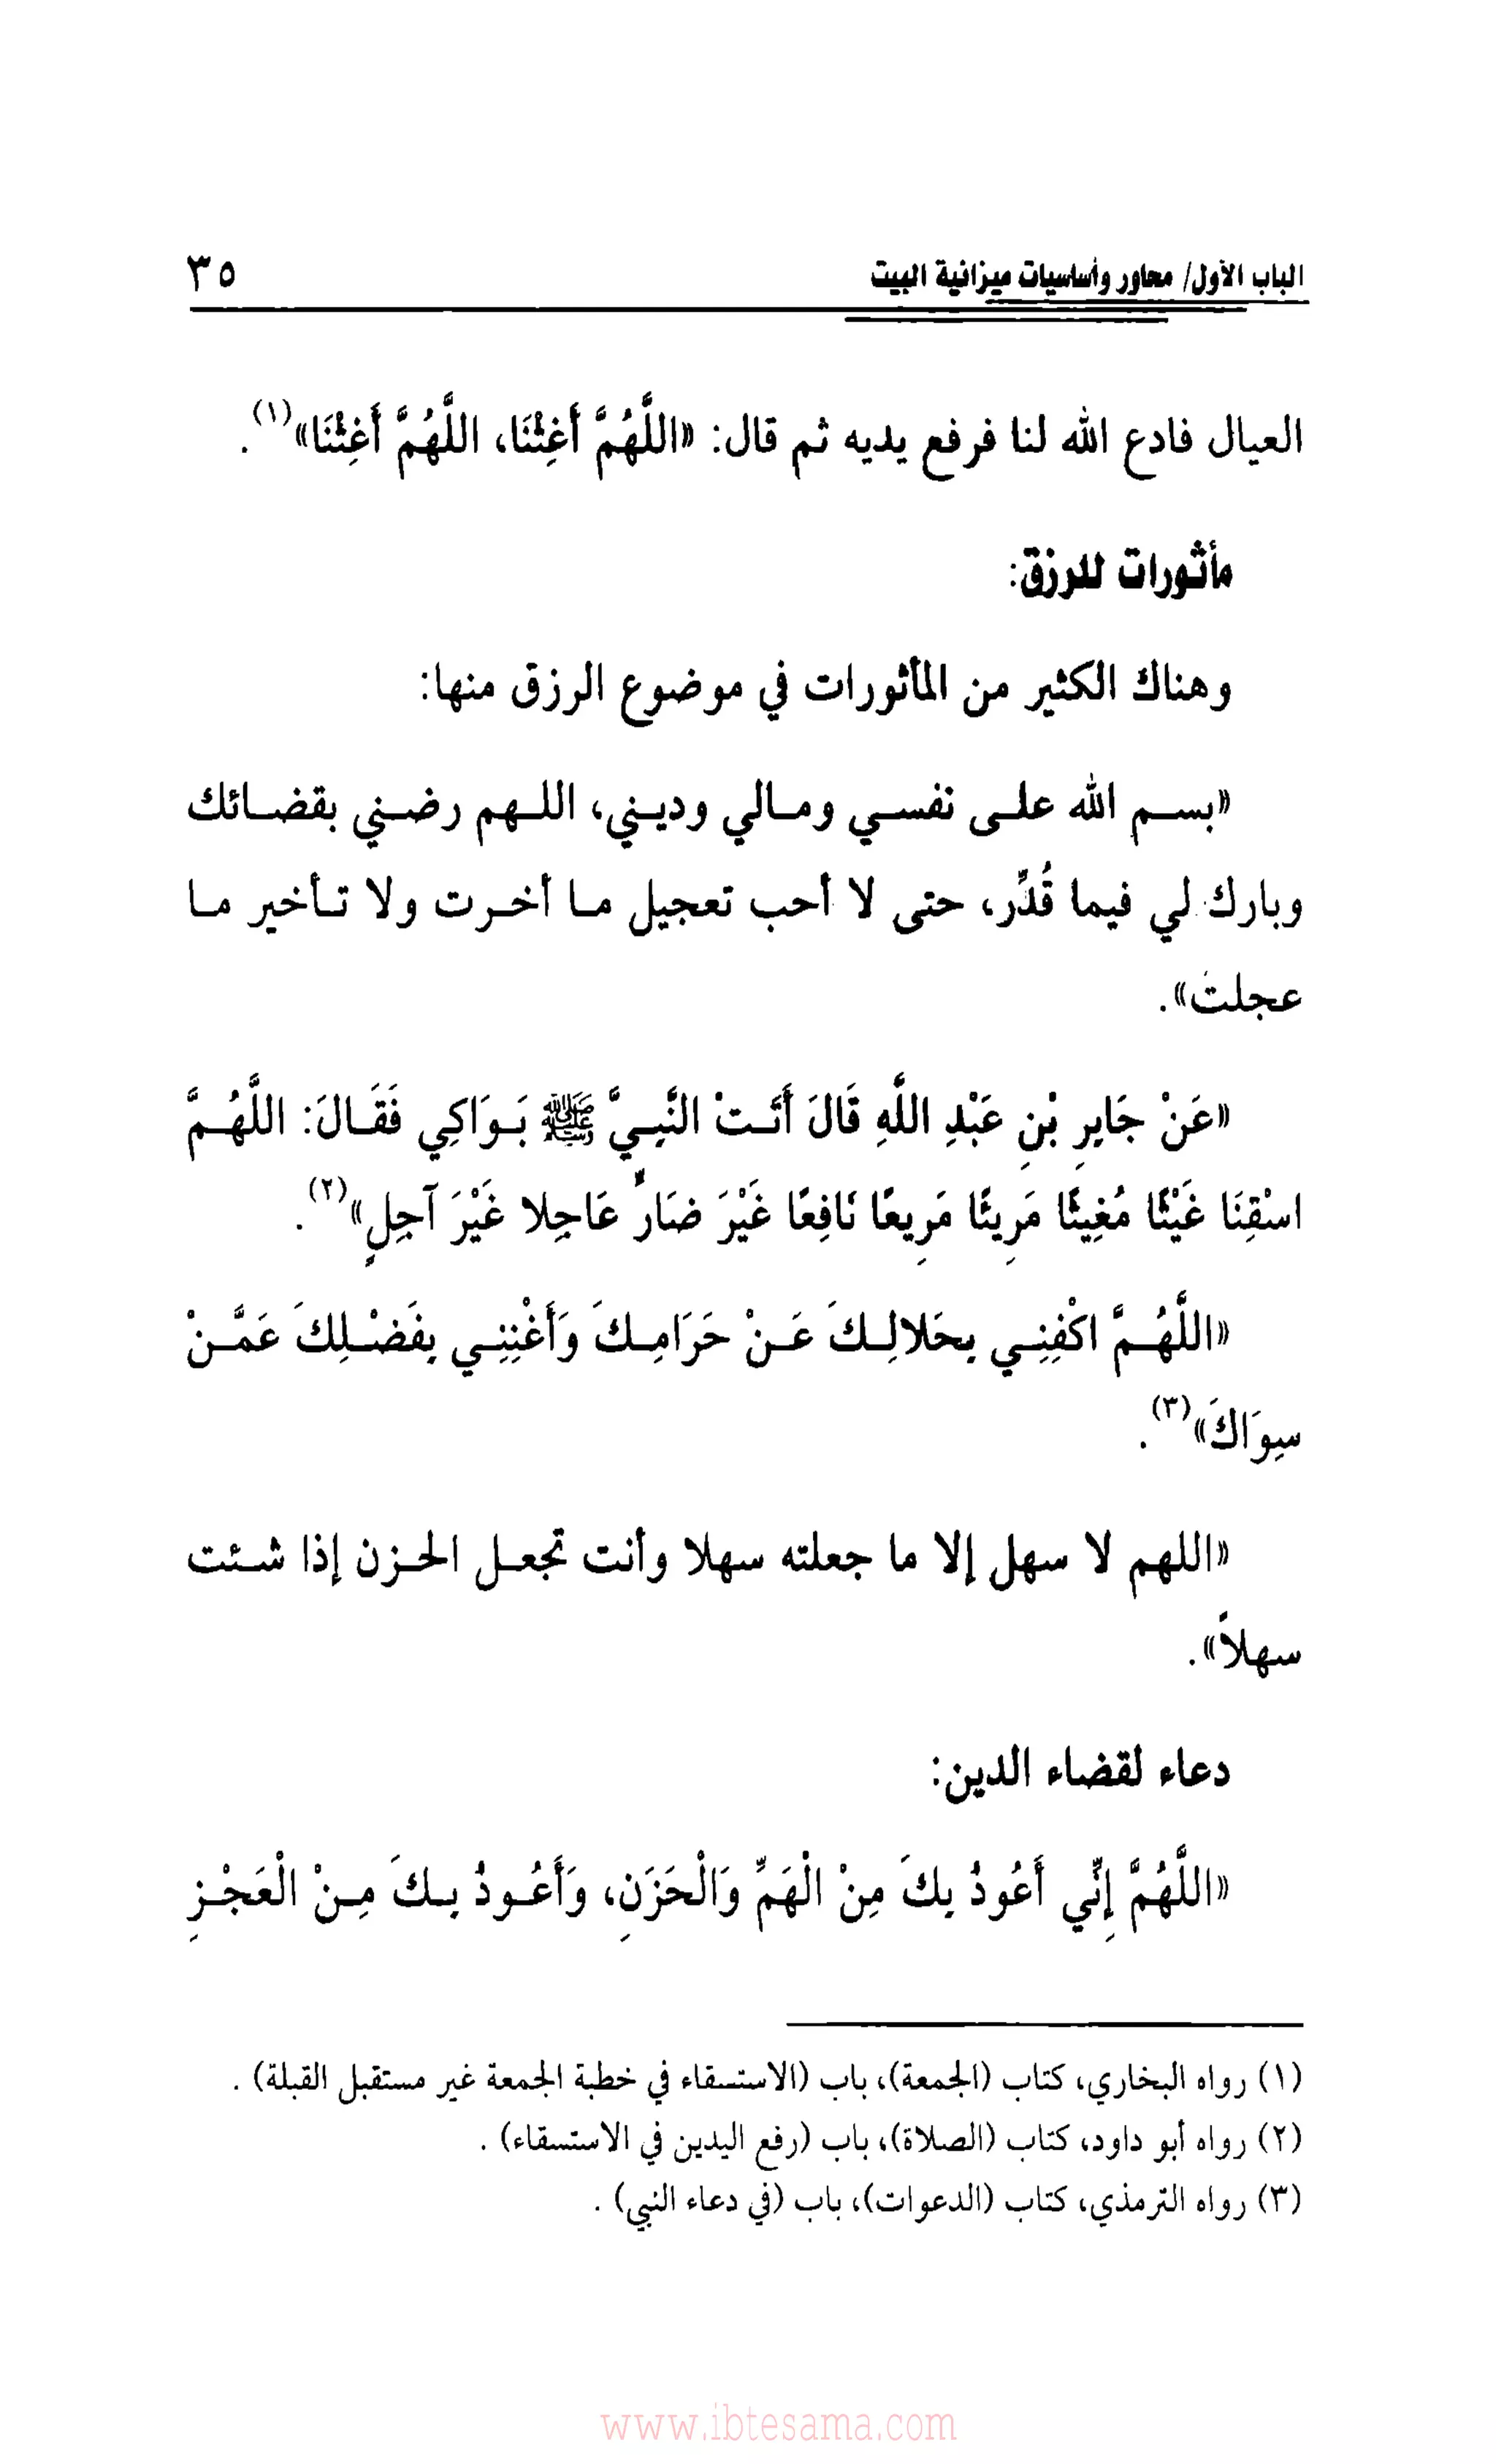 الباب الأول/ محاور وأساسيات ميزانية البيت ٣٥
العيال فادع الله لنا فرفع يديه ثم قال: «اللَّهُمَّ أَغِثْنَا، اللَّهُمَّ أَغِثْنَا»(١).
مأثورات للرزق:
وهناك الكثير من المأثورات في موضوع الرزق منها:
«بسم الله على نفسي ومالي وديني، اللهم رضني بقضائك
وبارك لي فيما قُدِّر، حتى لا أحب تعجيل ما أخرت ولا تأخير ما
عجلت».
«عَنْ جَابِرِ بْنِ عَبْدِ اللَّهِ قَالَ أَتَتْ النَّبِيَّ ﷺ بَوَاكِي فَقَالَ: اللَّهُمَّ
اسْقِنَا غَيْثًا مُغِيثًا مَرِيئًا مَرِيعًا نَافِعًا غَيْرَ ضَارٍّ عَاجِلا غَيْرَ آجِلٍ»(٢).
«اللَّهُمَّ اكْفِنِي بِحَلالِكَ عَنْ حَرَامِكَ وَأَغْنِنِي بِفَضْلِكَ عَمَّنْ
سِوَاكَ»(٣).
«اللهم لا سهل إلا ما جعلته سهلا وأنت تجعل الحزن إذا شئت
سهلاً».
دعاء لقضاء الدين:
«اللَّهُمَّ إِنِّي أَعُوذُ بِكَ مِنْ الْهَمِّ وَالْحَزَنِ، وَأَعُوذُ بِكَ مِنْ الْعَجْزِ
(١) رواه البخاري، كتاب (الجمعة)، باب (الاستسقاء في خطبة الجمعة غير مستقبل القبلة) .
(٢) رواه أبو داود، كتاب (الصلاة)، باب (رفع اليدين في الاستسقاء) .
(٣) رواه الترمذي، كتاب (الدعوات)، باب (في دعاء النبي) .
www.ibtesama.com